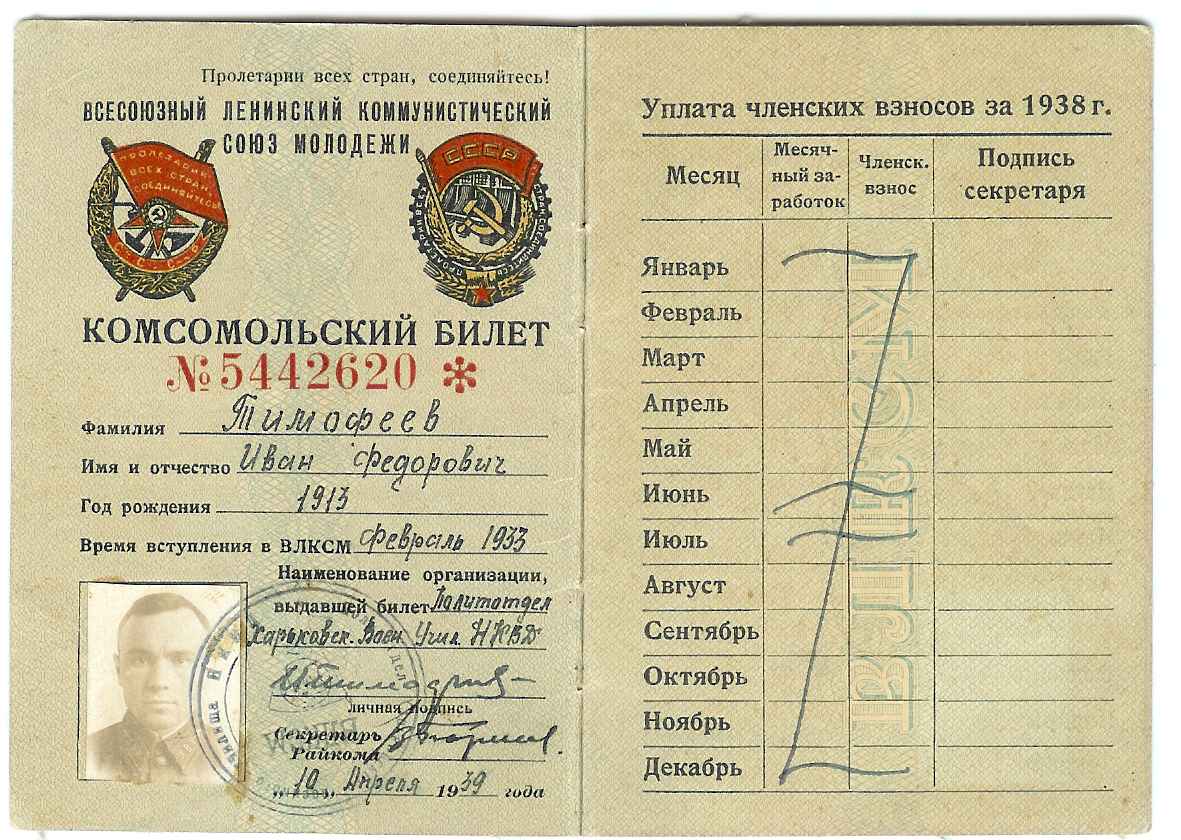 Пролетарии всех стран, соединяйтесь!
ВСЕСОЮЗНЫЙ ЛЕНИНСКИЙ КОММУНИСТИЧЕСКИЙ
СОЮЗ МОЛОДЕЖИ
ПРОЛЕТАРИИ
ВСЕХ СТРАН,
СОЕДИНЯЙТЕСЬ!
С.С.С.Р
СССР
КОМСОМОЛЬСКИЙ БИЛЕТ
№5442620 *
Фамилия Тимофеев
Имя и отчество Иван Федорович
Год рождения 1913
Время вступления в ВЛКСМ февраль 1933
Наименование организации,
выдавшей билет Политотдел
Харьковск. Воен. Учил. НКВД
личная подпись
Секретарь
Райкома
„10„ Апреля 1939 года
Уплата членских взносов за 1938 г.
Месяц
Месяч-
ный за-
работок
Членск.
взнос
Подпись
секретаря
ВЛКСМ
Январь
Февраль
Март
Апрель
Май
Июнь
Июль
Август
Сентябрь
Октябрь
Ноябрь
Декабрь